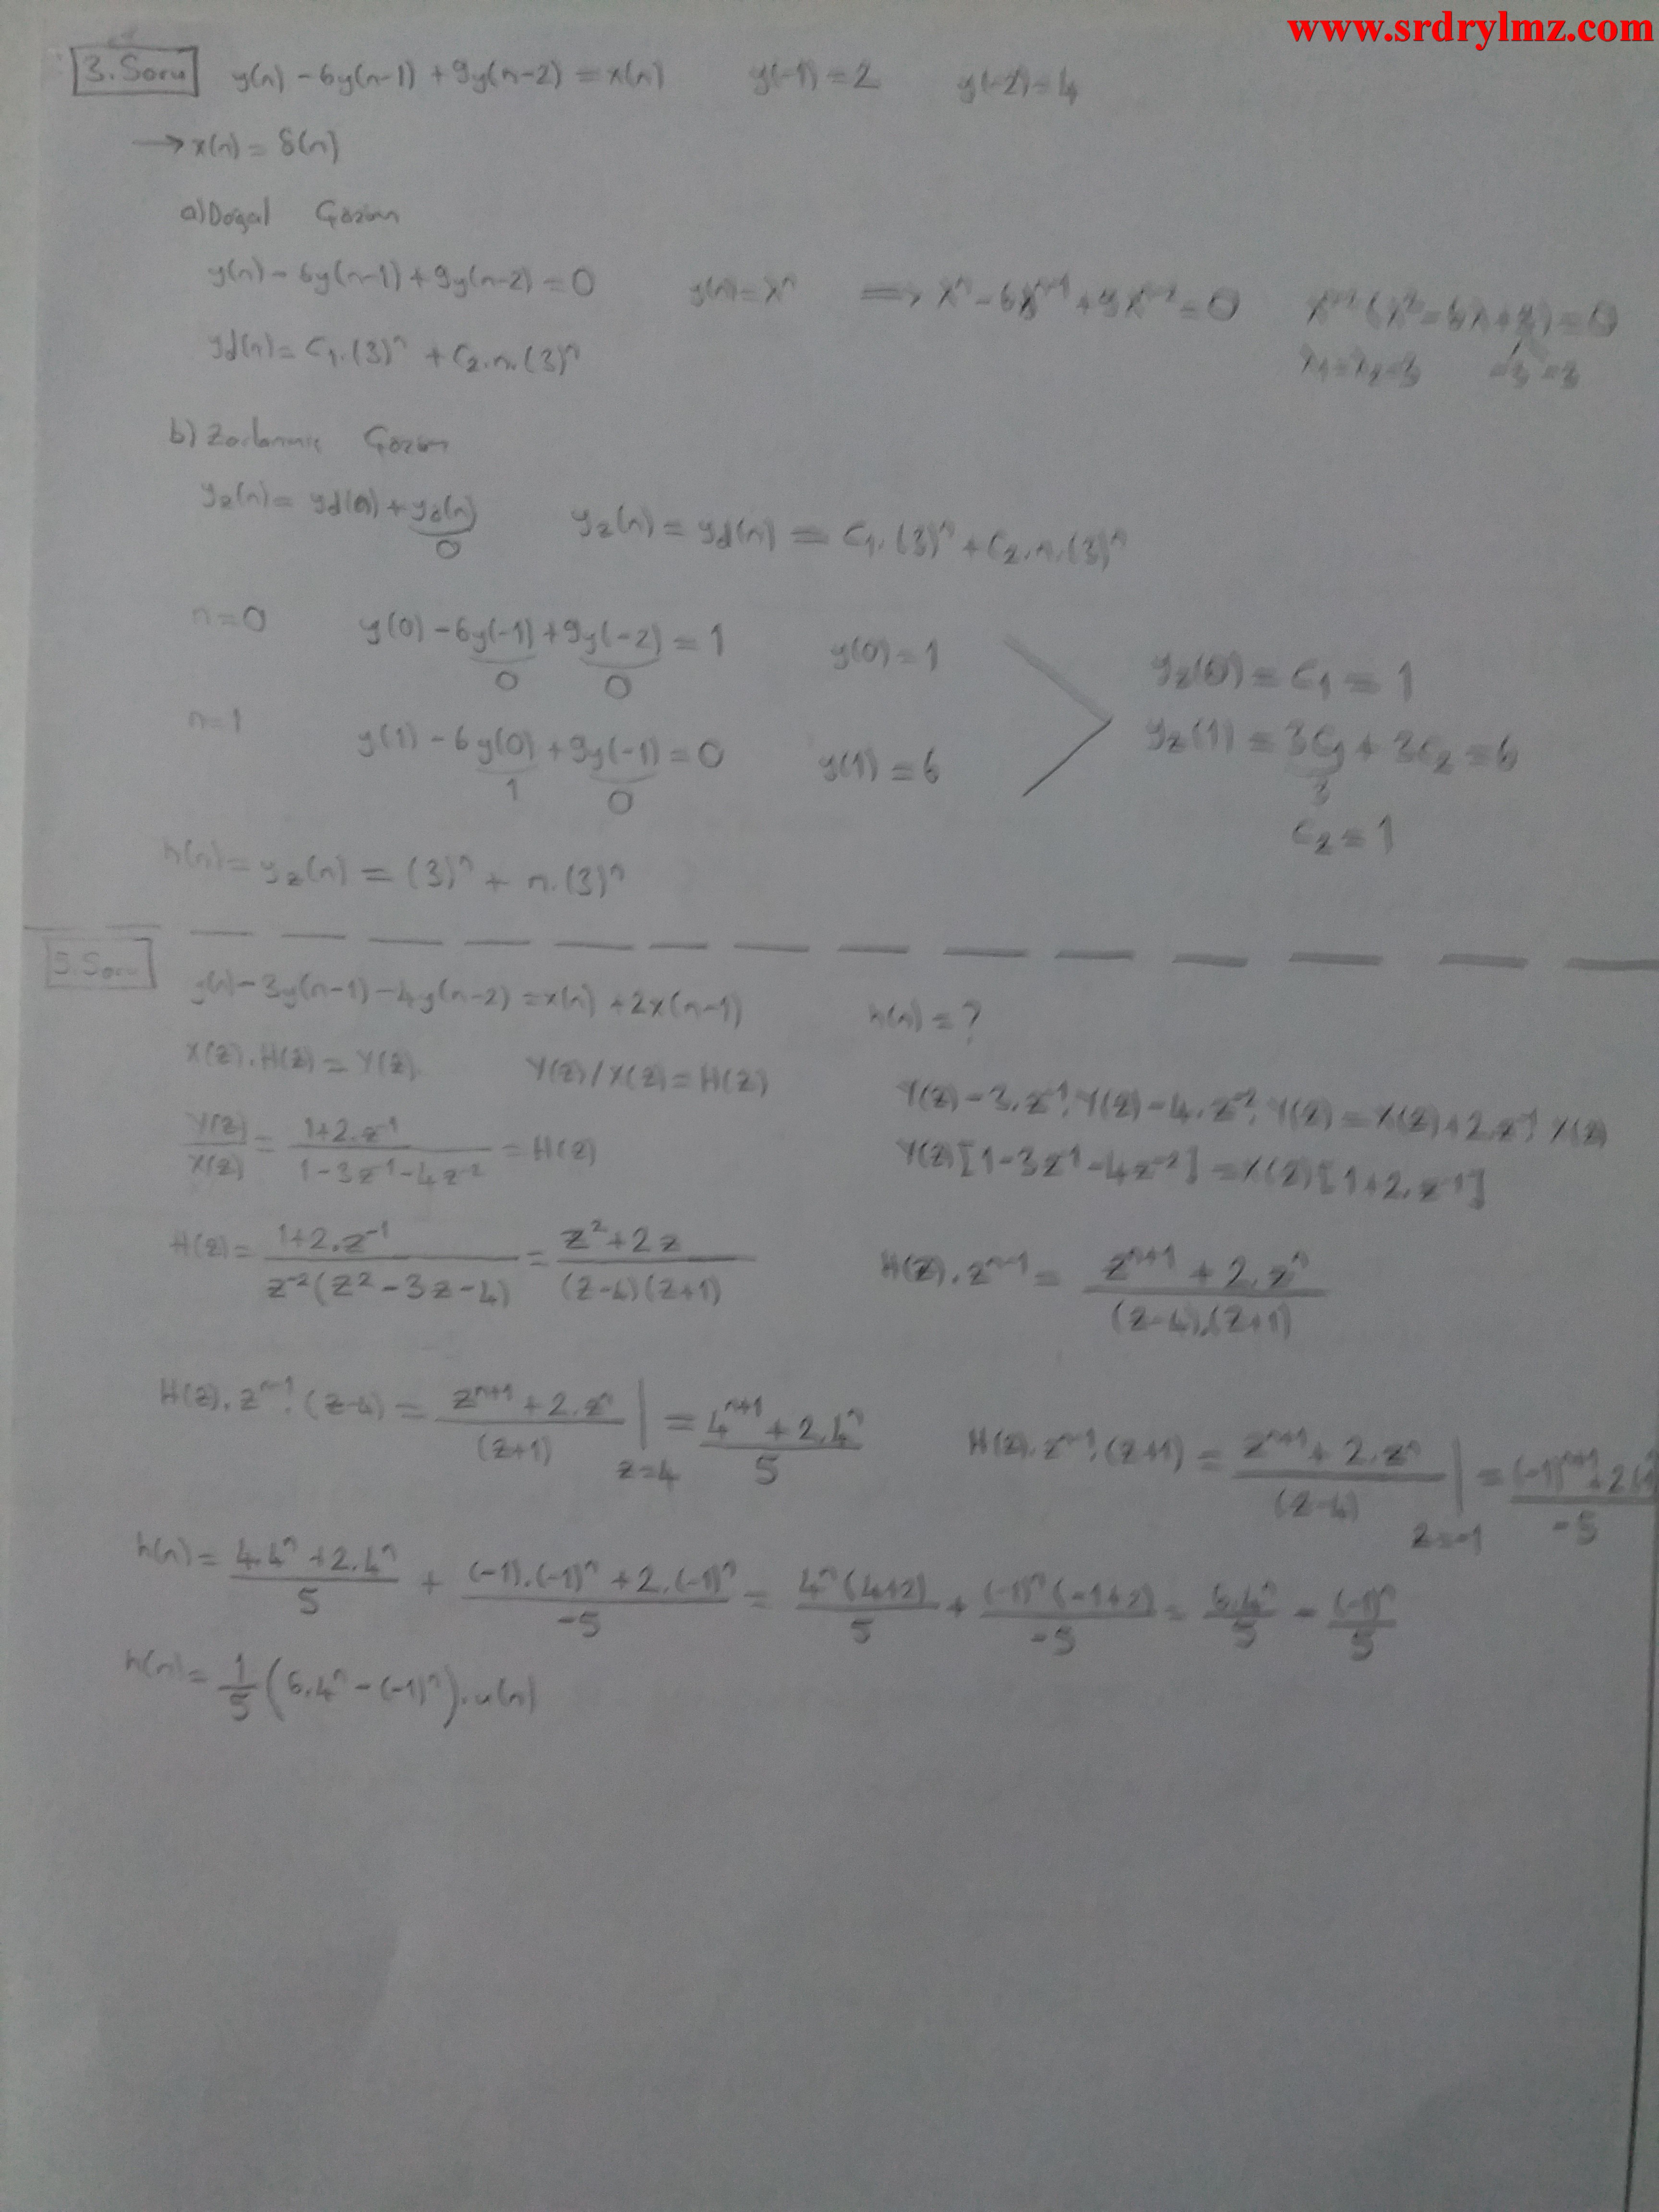 www.srdrylmz.com
3.Soru y(n) - 6y(n-1) + 9y(n-2) = x(n) y(-1) = 2 y(-2) = 4
→ x(n) = δ(n)
a) Doğal Çözüm
y(n) - 6y(n-1) + 9y(n-2) = 0 y(n) = λⁿ ⟹ λⁿ - 6λⁿ⁻¹ + 9λⁿ⁻² = 0 λⁿ⁻² (λ² - 6λ + 9) = 0
yd(n) = C₁.(3)ⁿ + C₂.n.(3)ⁿ λ₁ = λ₂ = 3 -3 -3
b) Zorlanmış Çözüm
yz(n) = yd(n) + yö(n) yz(n) = yd(n) = C₁.(3)ⁿ + C₂.n.(3)ⁿ
0
n = 0 y(0) - 6y(-1) + 9y(-2) = 1 y(0) = 1 yz(0) = C₁ = 1
0 0
n = 1 y(1) - 6y(0) + 9y(-1) = 0 y(1) = 6 yz(1) = 3C₁ + 3C₂ = 6
1 0 3
C₂ = 1
h(n) = yz(n) = (3)ⁿ + n.(3)ⁿ
5.Soru y(n) - 3y(n-1) - 4y(n-2) = x(n) + 2x(n-1) h(n) = ?
X(z).H(z) = Y(z) Y(z)/X(z) = H(z) Y(z) - 3.z⁻¹.Y(z) - 4.z⁻².Y(z) = X(z) + 2.z⁻¹.X(z)
Y(z)/X(z) = (1+2.z⁻¹)/(1-3z⁻¹-4z⁻²) = H(z) Y(z)[1-3z⁻¹-4z⁻²] = X(z)[1+2.z⁻¹]
H(z) = (1+2.z⁻¹)/(z⁻²(z²-3z-4)) = (z²+2z)/((z-4)(z+1)) H(z).zⁿ⁻¹ = (zⁿ⁺¹ + 2.zⁿ)/((z-4).(z+1))
H(z).zⁿ⁻¹.(z-4) = (zⁿ⁺¹ + 2.zⁿ)/(z+1) | z=4 = (4ⁿ⁺¹ + 2.4ⁿ)/5 H(z).zⁿ⁻¹.(z+1) = (zⁿ⁺¹ + 2.zⁿ)/(z-4) | z=-1 = ((-1)ⁿ⁺¹ + 2(-1)/-5
h(n) = (4.4ⁿ + 2.4ⁿ)/5 + ((-1).(-1)ⁿ + 2.(-1)ⁿ)/-5 = 4ⁿ(4+2)/5 + (-1)ⁿ(-1+2)/-5 = 6.4ⁿ/5 - (-1)ⁿ/5
h(n) = 1/5 (6.4ⁿ - (-1)ⁿ).u(n)